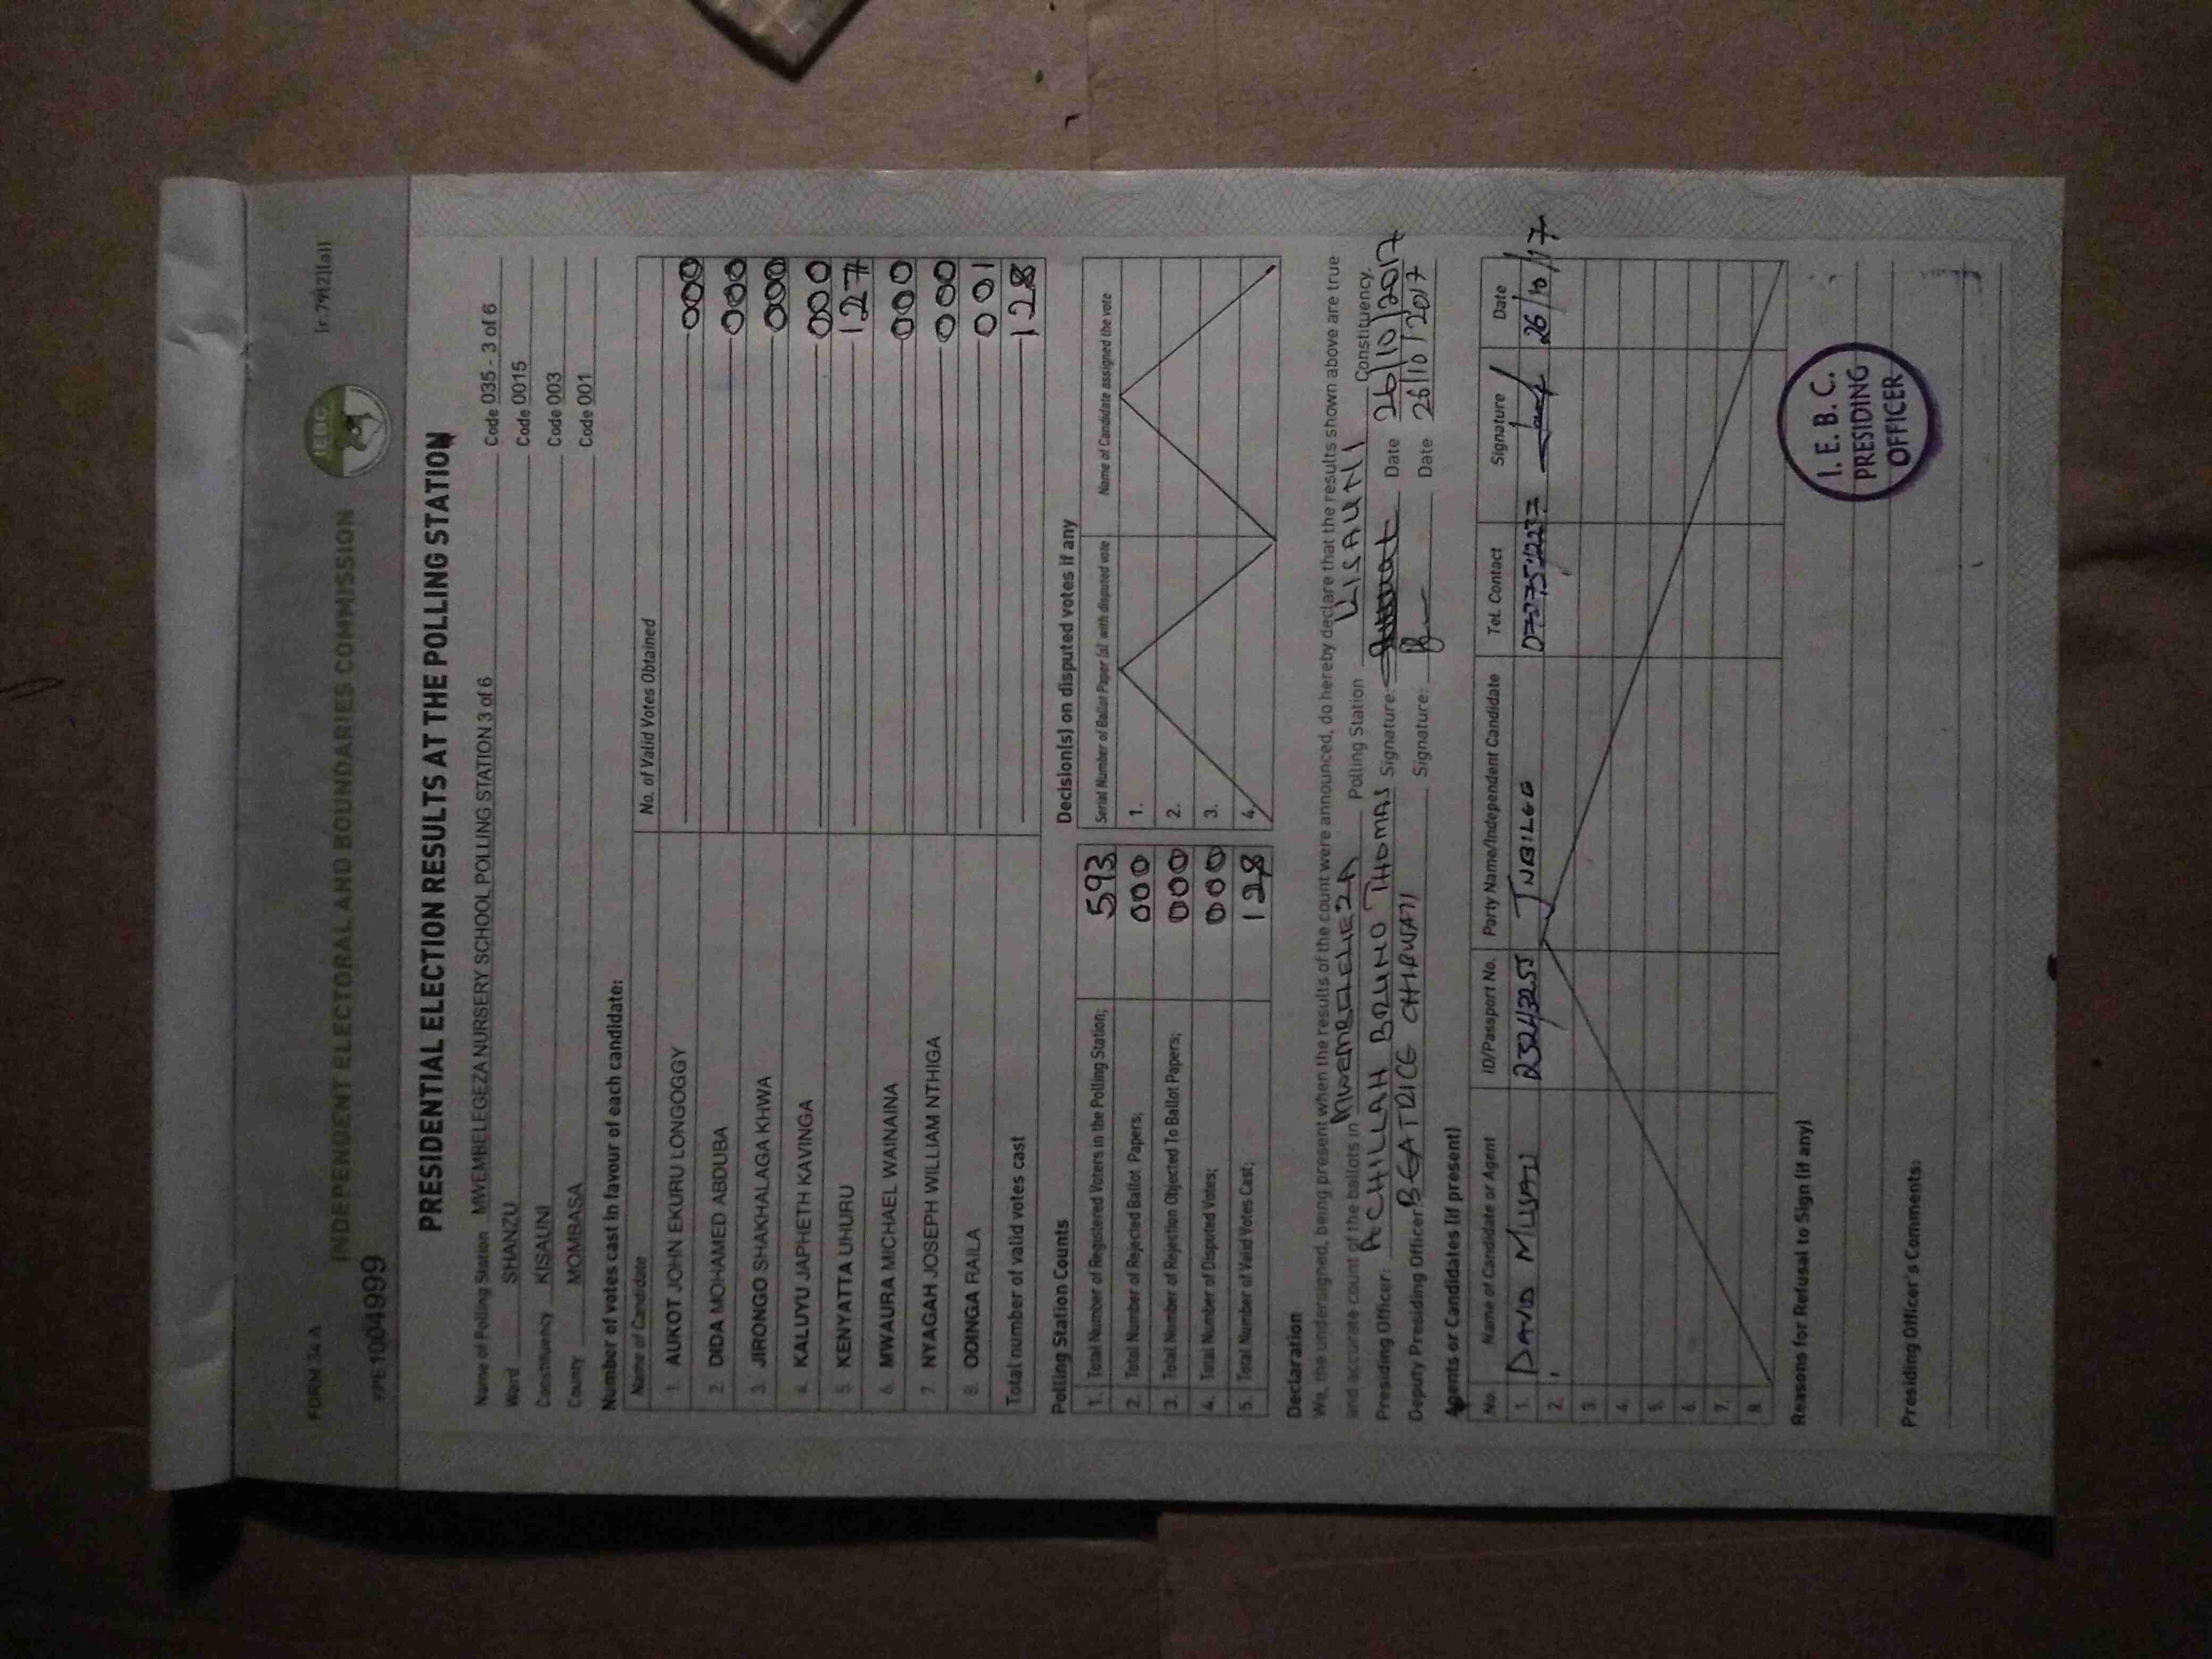 FORM 34 A
[r.79(2)(a)]
INDEPENDENT ELECTORAL AND BOUNDARIES COMMISSION
IEBC
#PE1004999
PRESIDENTIAL ELECTION RESULTS AT THE POLLING STATION
Name of Polling Station MWEMBELEGEZA NURSERY SCHOOL POLLING STATION 3 of 6 Code 035 - 3 of 6
Ward SHANZU Code 0015
Constituency KISAUNI Code 003
County MOMBASA Code 001
Number of votes cast in favour of each candidate:
Name of Candidate No. of Valid Votes Obtained
1. AUKOT JOHN EKURU LONGOGGY 000
2. DIDA MOHAMED ABDUBA 000
3. JIRONGO SHAKHALAGA KHWA 000
4. KALUYU JAPHETH KAVINGA 000
5. KENYATTA UHURU 127
6. MWAURA MICHAEL WAINAINA 000
7. NYAGAH JOSEPH WILLIAM NTHIGA 000
8. ODINGA RAILA 001
Total number of valid votes cast 128
Polling Station Counts
1. Total Number of Registered Voters in the Polling Station; 593
2. Total Number of Rejected Ballot Papers; 000
3. Total Number of Rejection Objected To Ballot Papers; 000
4. Total Number of Disputed Votes; 000
5. Total Number of Valid Votes Cast; 128
Decision(s) on disputed votes if any
Serial Number of Ballot Paper (s) with disputed vote Name of Candidate assigned the vote
1.
2.
3.
4.
Declaration
We, the undersigned, being present when the results of the count were announced, do hereby declare that the results shown above are true
and accurate count of the ballots in Polling Station KISAUNI Constituency.
Presiding Officer: ACHILLAH BRUNO THOMAS Signature: Date 26/10/2017
Deputy Presiding Officer: BEATRICE Signature: Date 26/10/2017
Agents or Candidates (if present)
No. Name of Candidate or Agent ID/Passport No. Party Name/Independent Candidate Tel. Contact Signature Date
1. DAVID 26/10/17
2.
3.
4.
5.
6.
7.
8.
Reasons for Refusal to Sign (if any)
Presiding Officer's Comments:
I.E.B.C.
PRESIDING
OFFICER